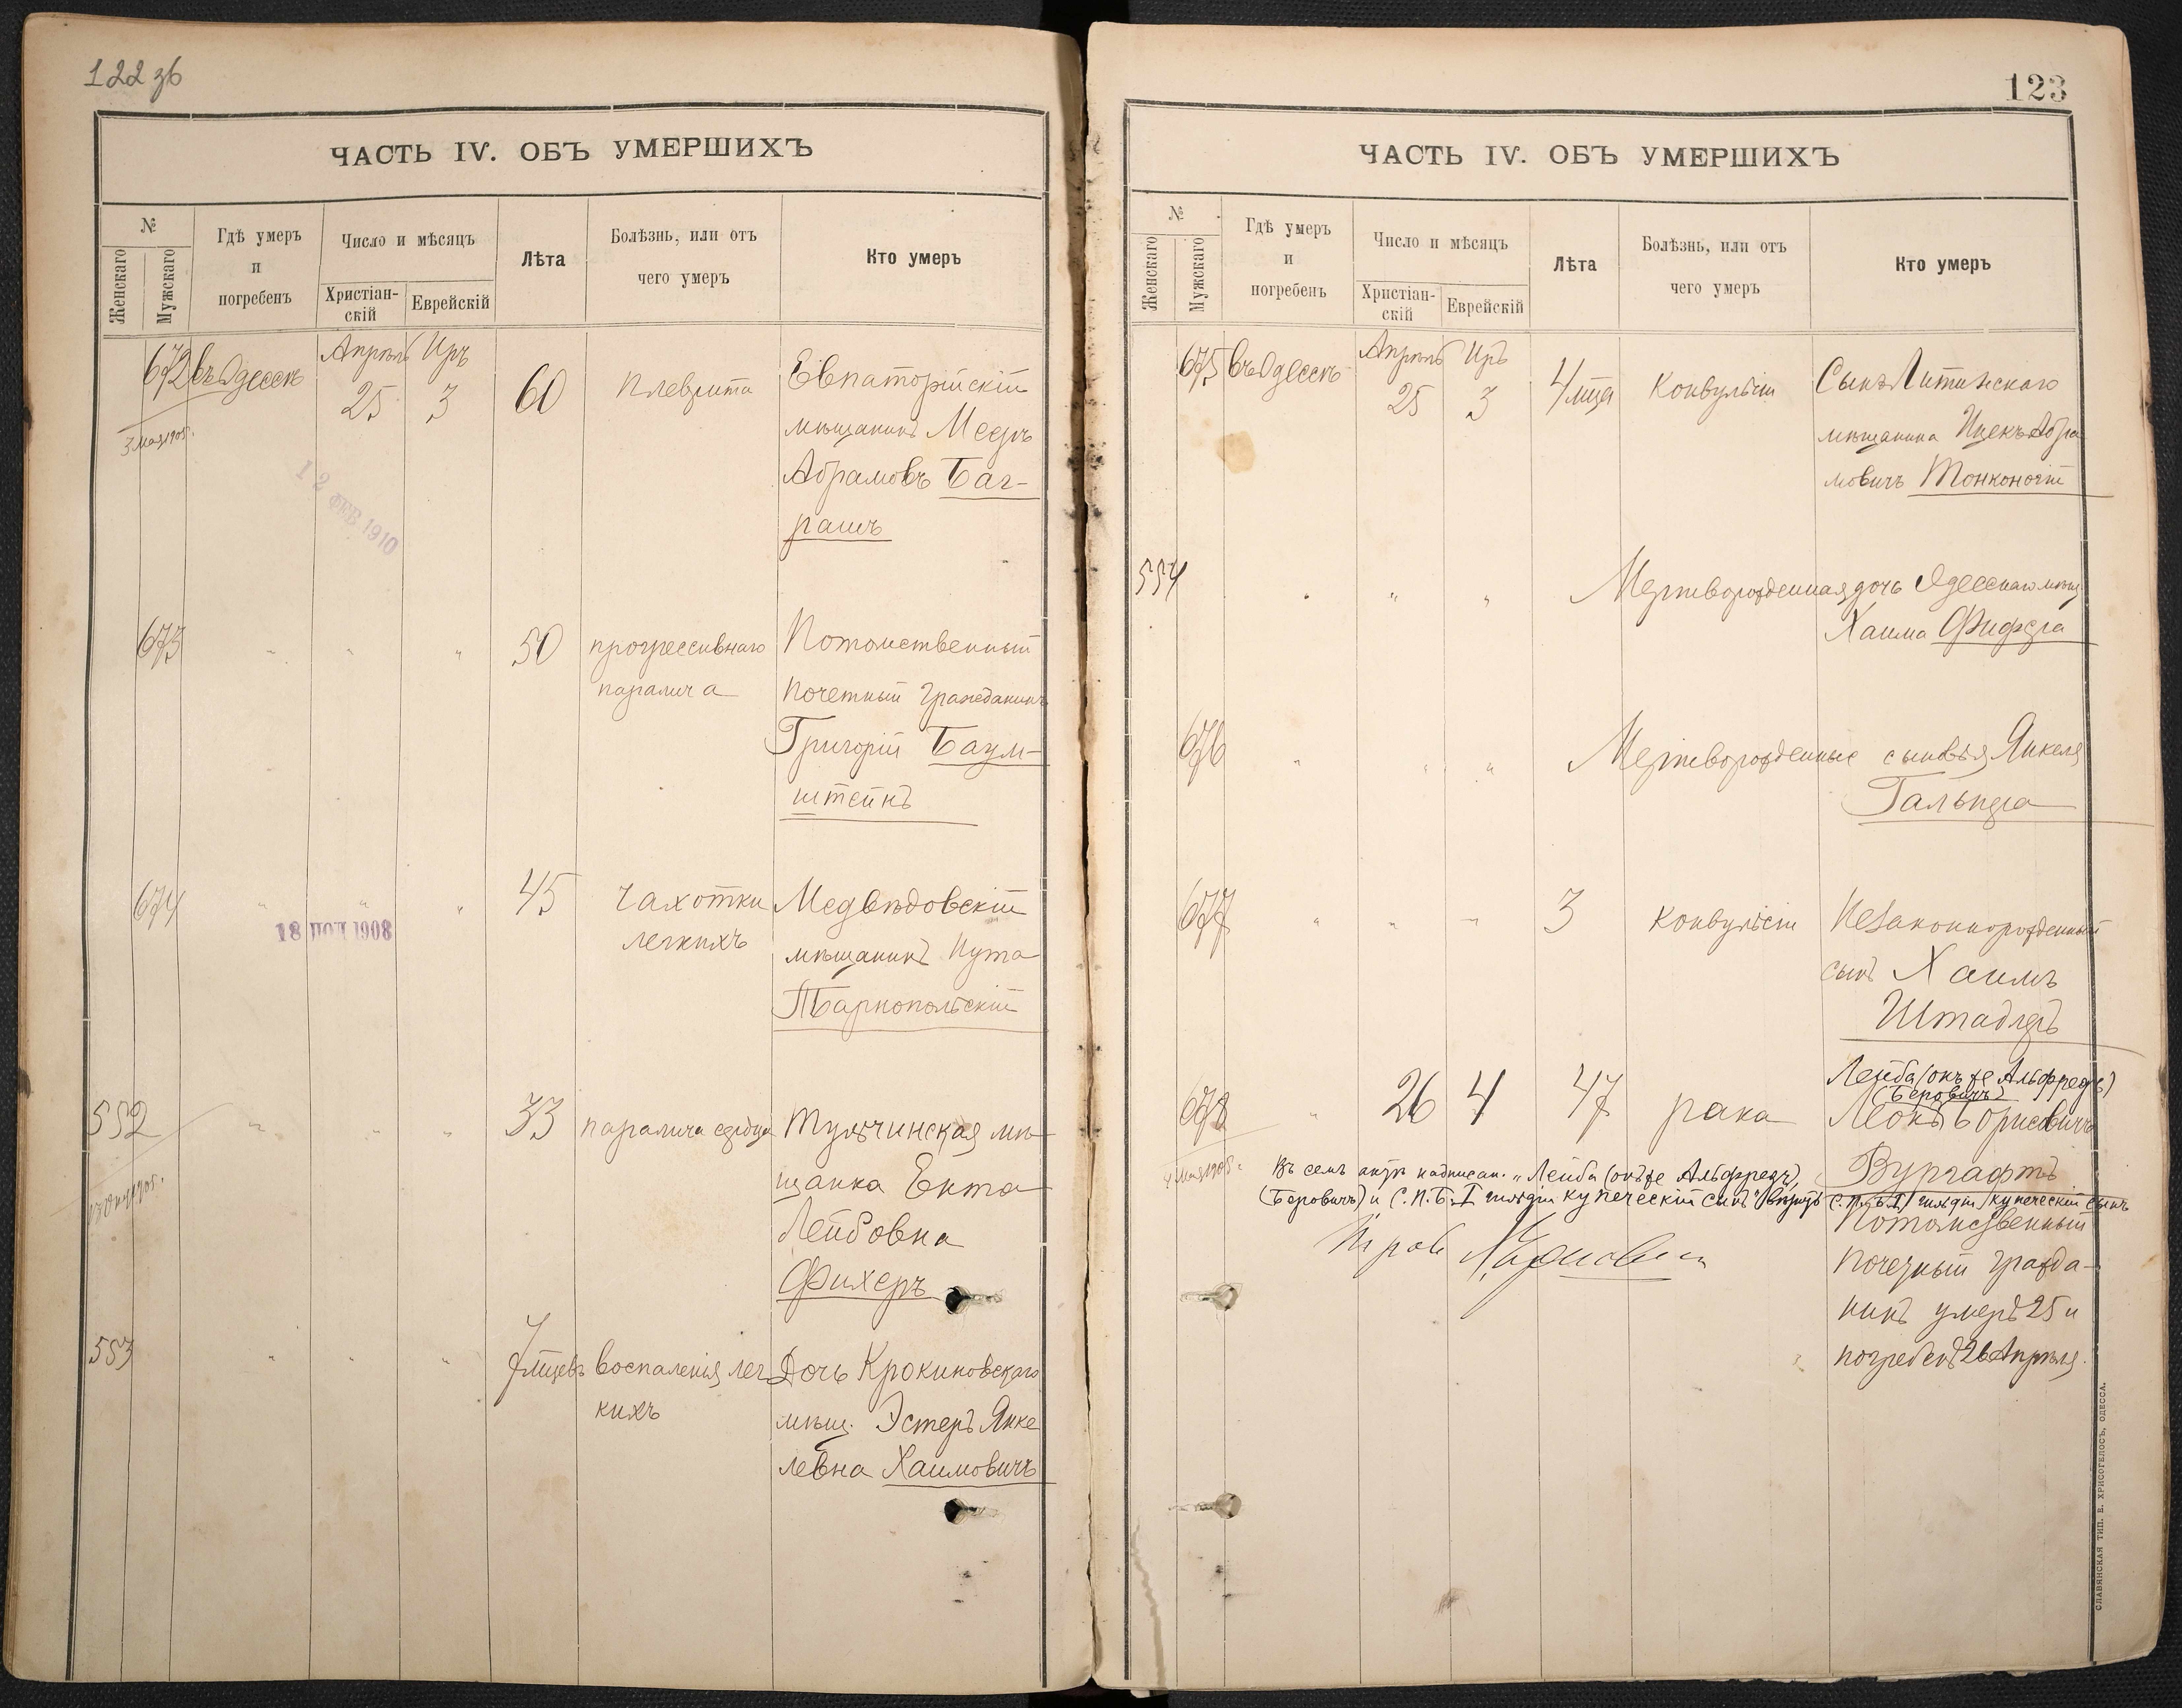 122 зб
ЧАСТЬ IV. ОБЪ УМЕРШИХЪ
№
Женскаго
Мужскаго
Гдѣ умеръ
и
погребенъ
Число и мѣсяцъ
Христіан-
скій
Еврейскій
Лѣта
Болѣзнь, или отъ
чего умеръ
Кто умеръ
672 въ Одессѣ Апрѣль 25 Иръ 3 60 плеврита Евпаторійскій
мѣщанинъ
Абрамовъ Баг-
рашъ
3 мая 1905.
12 ФЕВ 1910
673 " " " 50 прогрессивнаго Потомственный
паралича почетный гражданинъ
Григорій Баум-
штейнъ
674 " " " 45 чахотки Медвѣдовскій
легкихъ мѣщанинъ Нута
Тарнопольскій
18 1908
552 " " " 33 паралича сердца Тульчинская мѣ-
щанка Ента
Лейбовна
Фихеръ
553 " " " 7 мцевъ воспаленія лег Дочь
кихъ мѣщ. Эстеръ Янке
левна Хаимовичъ
123
ЧАСТЬ IV. ОБЪ УМЕРШИХЪ
№
Женскаго
Мужскаго
Гдѣ умеръ
и
погребенъ
Число и мѣсяцъ
Христіан-
скій
Еврейскій
Лѣта
Болѣзнь, или отъ
чего умеръ
Кто умеръ
675 въ Одессѣ Апрѣль 25 Иръ 3 4 мца Конвульсіи Сынъ Литинскаго
мѣщанина Ицекъ Абра
мовичъ Тонконогій
554 " " " Мертворожденная дочь Одесскаго мѣщ.
Хаима
676 " " " Мертворожденные сыновья Янкеля
Гальпера
677 " " " 3 конвульсіи Незаконнорожденный
сынъ Хаимъ
Штадлеръ
678 " 26 4 47 рака Лейба (онъ же Альфредъ)
(Беровичъ)
Леонъ Борисовичъ
Вургафтъ
С.П.Б. I гильдіи купеческій сынъ
Потомственный
почетный гражда-
нинъ умеръ 25 и
погребенъ 26 Апрѣля.
4 мая 1905.
Въ семъ актѣ надписан. "Лейба (онъ же Альфредъ),
(Беровичъ) и С.П.Б. I гильдіи купеческій сынъ" вѣрить
СЛАВЯНСКАЯ ТИП. Е. ХРИСОГЕЛОСЪ, ОДЕССА.